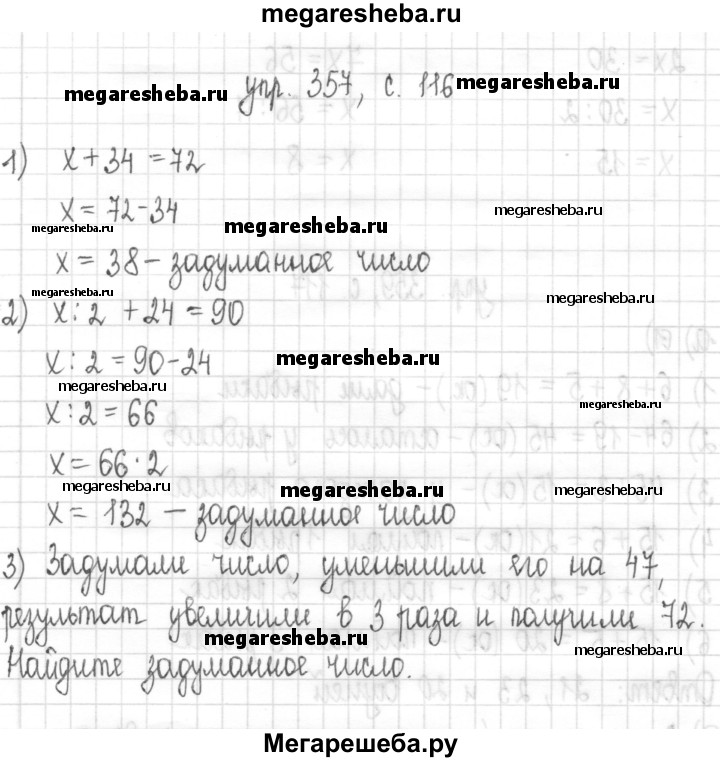 megaresheba.ru
упр. 357, с. 116
megaresheba.ru megaresheba.ru
1) x + 34 = 72
x = 72 - 34
megaresheba.ru
megaresheba.ru megaresheba.ru
x = 38 - задуманное число
megaresheba.ru megaresheba.ru
2) x : 2 + 24 = 90
x : 2 = 90 - 24
megaresheba.ru
megaresheba.ru
x : 2 = 66
megaresheba.ru
x = 66 · 2
megaresheba.ru megaresheba.ru megaresheba.ru
x = 132 - задуманное число
3) Задумали число, уменьшили его на 47,
результат увеличили в 3 раза и получили 72.
megaresheba.ru megaresheba.ru
Найдите задуманное число.
Мегарешеба.ру